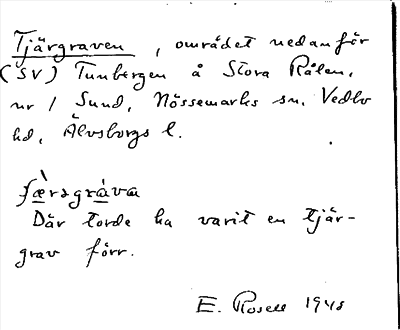 Tjärgraven, området nedanför
(SV) Tunbergen å Stora Rålen,
nr 1 Sund, Nössemarks sn, Vedbo
hd, Älvsborgs l.
Där torde ha varit en tjär-
grav förr.
E. Rosell 1948